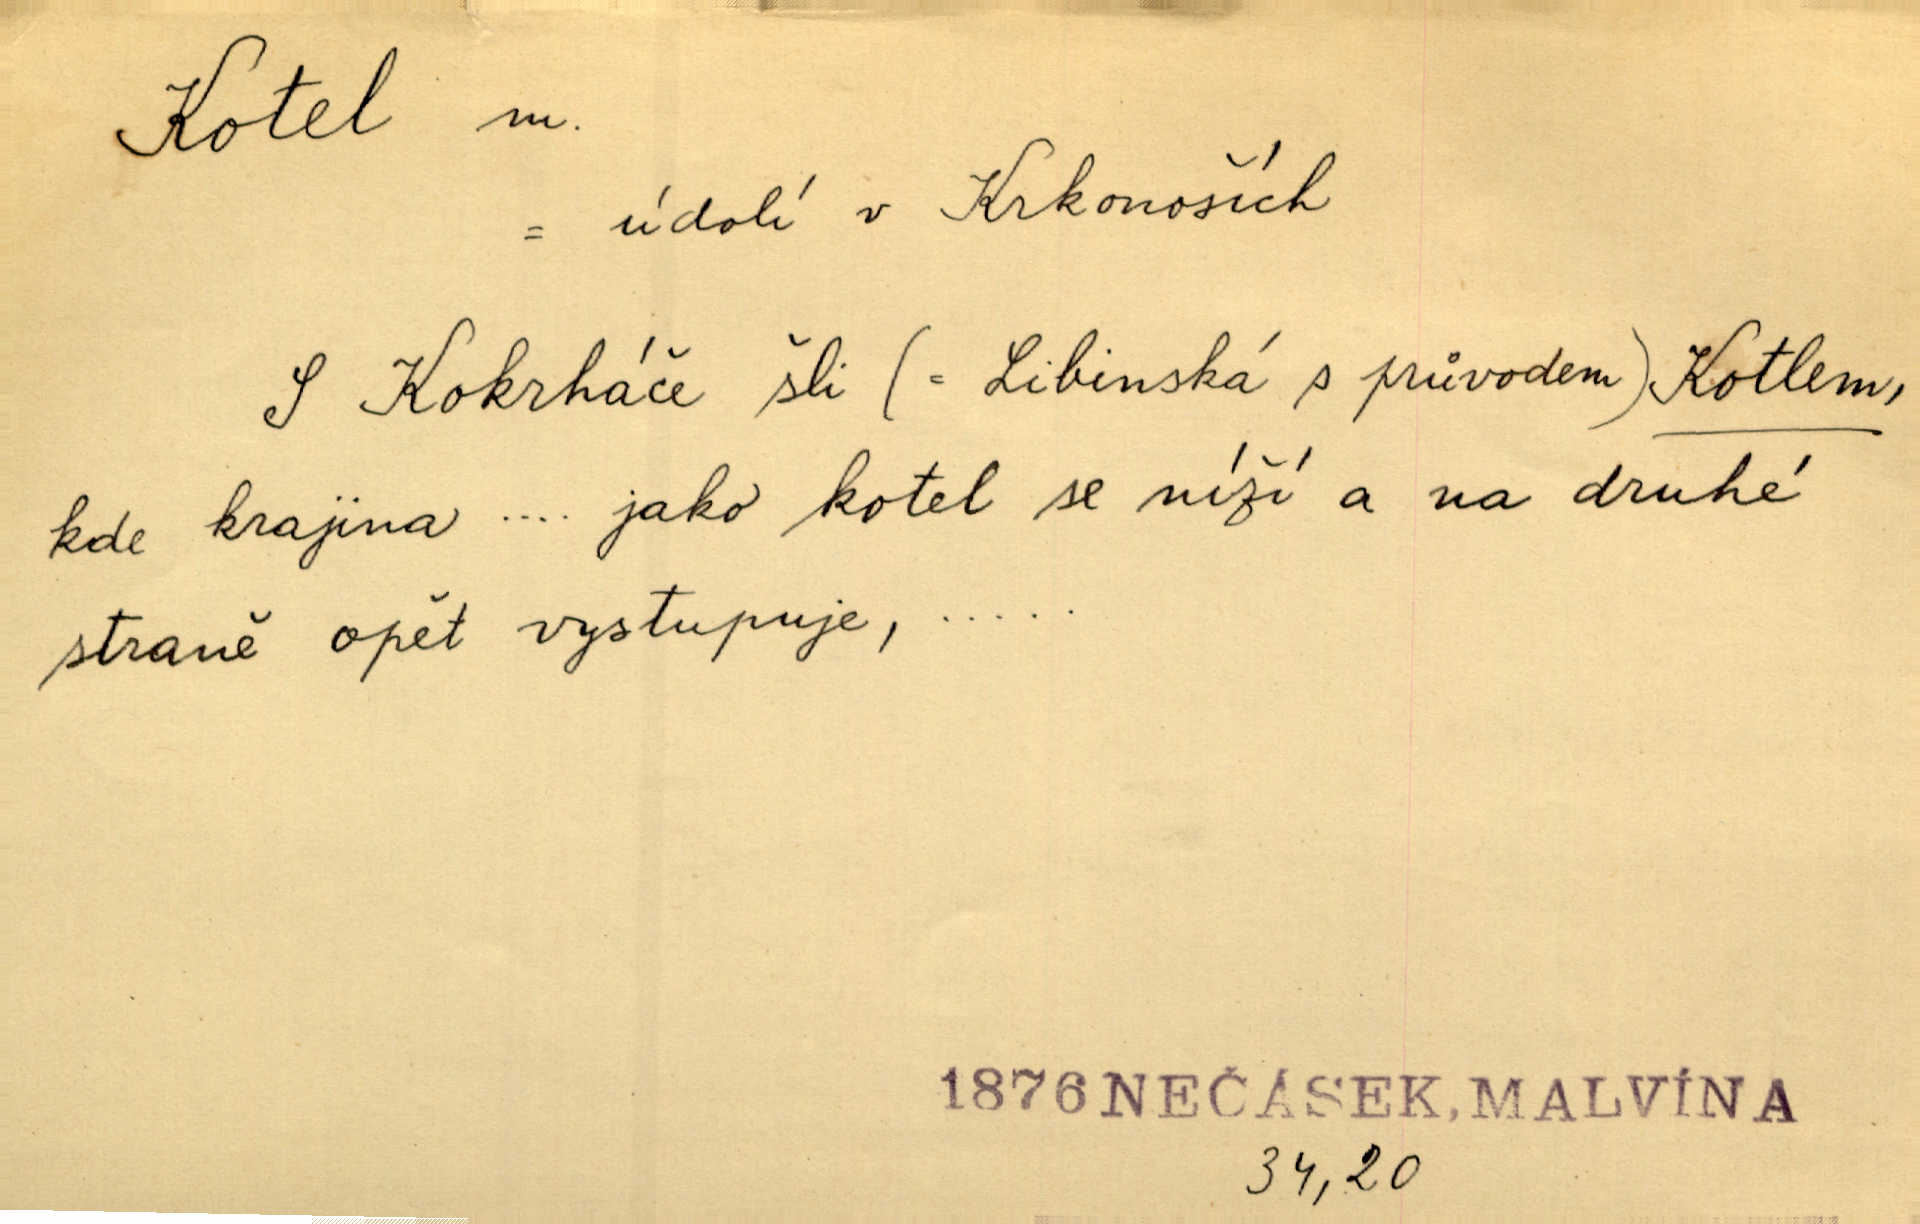 Kotel m.
= údolí v Krkonoších
S Kokrháče šli (= Libinská s průvodem) Kotlem,
kde krajina .... jako kotel se níží a na druhé
straně opět vystupuje, .....
1876 NEČÁSEK, MALVÍNA
34,20